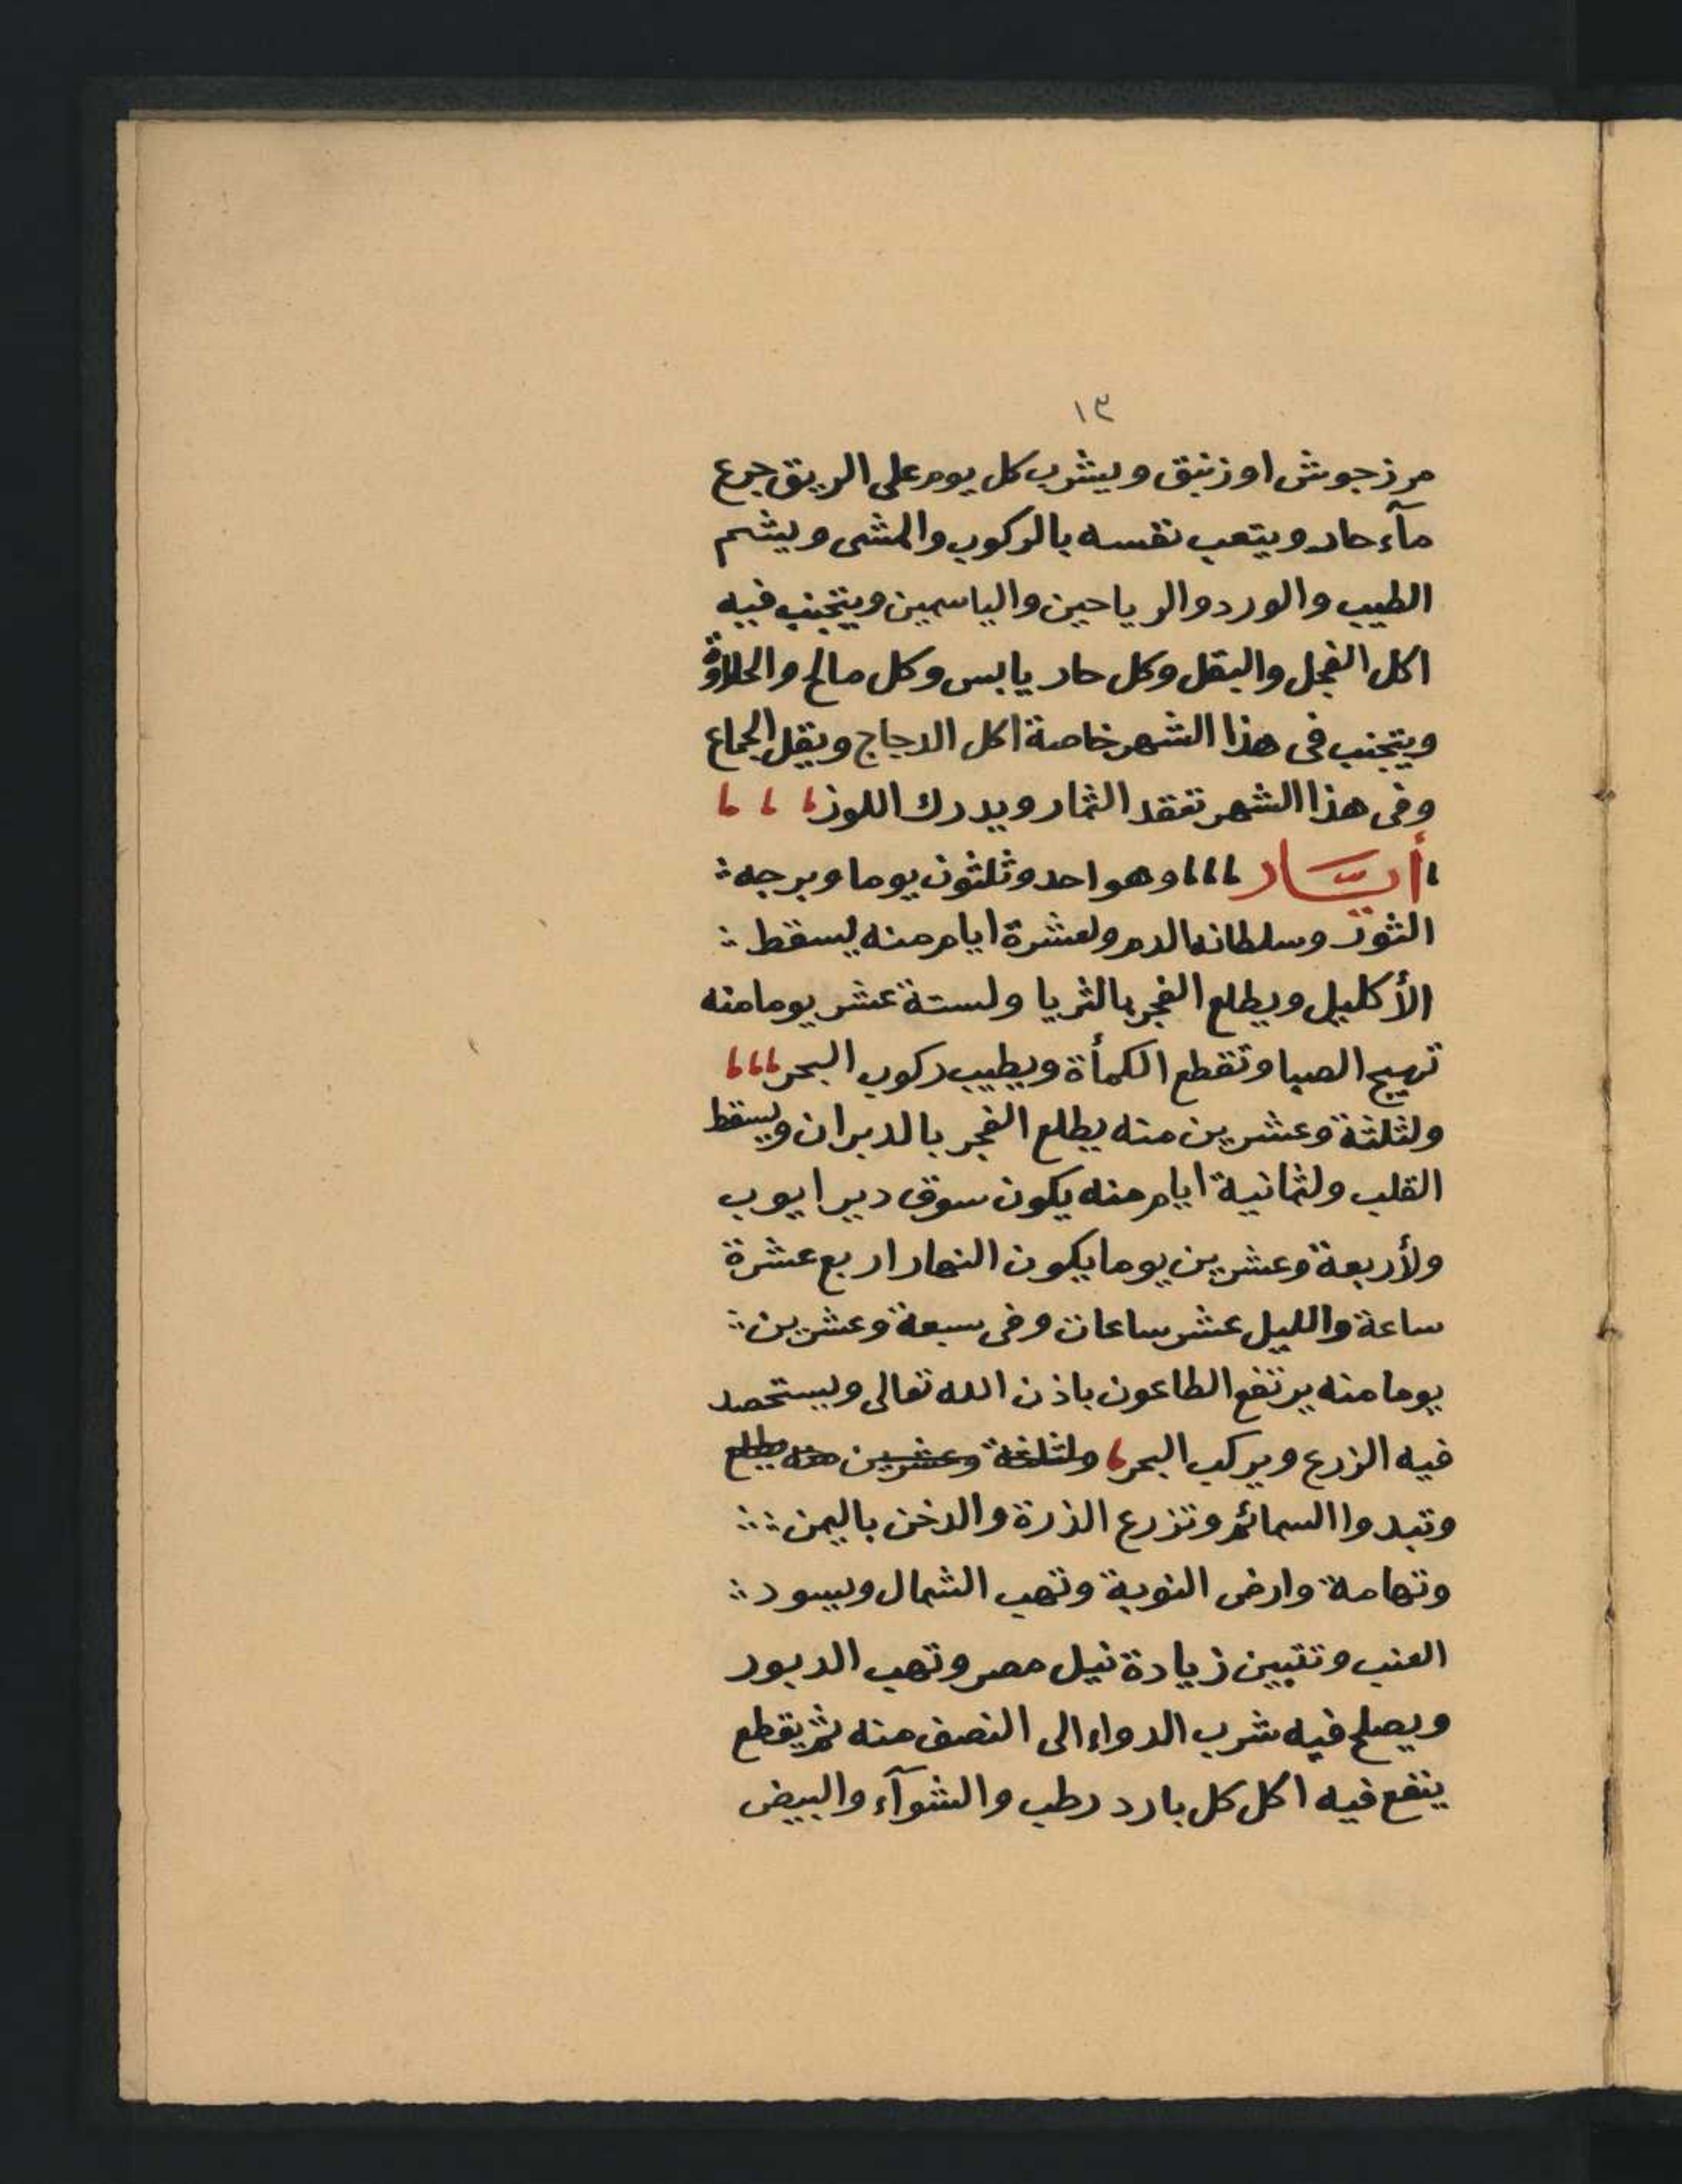 ١٣
مرزجوش او زنبق ويشرب كل يوم على الريق جرع
مآء حار ويتعب نفسه بالركوب والمشى ويشم
الطيب والورد والرياحين والياسمين ويتجنب فيه
اكل الفجل والبقل وكل حار يابس وكل مالح والحلاوة
ويتجنب فى هذا الشهر خاصة اكل الدجاج ويقل الجماع
وفى هذا الشهر تعقد الثمار ويدرك اللوز
أيَّار وهو احد وثلثون يوما وبرجه
الثور وسلطانه الدم ولعشرة ايام منه يسقط
الأكليل ويطلع الفجر بالثريا ولستة عشر يوما منه
تهيج الصبا وتقطع الكمأة ويطيب ركوب البحر
ولثلثة وعشرين منه يطلع الفجر بالدبران ويسقط
القلب ولثمانية ايام منه يكون سوق دير ايوب
ولأربعة وعشرين يوما يكون النهار اربع عشرة
ساعة والليل عشر ساعات وفى سبعة وعشرين
يوما منه يرتفع الطاعون باذن الله تعالى ويستحصد
فيه الزرع ويركب البحر ولثلثة وعشرين منه يطلع
وتبدوا السمائم وتزرع الذرة والدخن باليمن
وتهامة وارض النوبة وتهب الشمال ويسود
العنب وتتبين زيادة نيل مصر وتهب الدبور
ويصلح فيه شرب الدواء الى النصف منه ثم يقطع
ينفع فيه اكل كل بارد رطب والشوآء والبيض